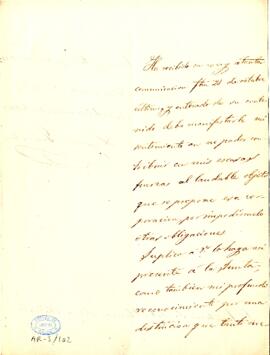 He recibido su muy atenta
comunicacion fha 21 de octubre
último, y enterado de su conte-
nido debo manifestarle mi
sentimiento en no poder con-
tribuir con mis escasas
fuerzas al laudable objeto
que se propone esa cor-
poracion, por impedírmelo
otras obligaciones
Suplico a V. lo haga así
presente a la Junta,
como tambien mi profundo
reconocimiento por una
distincion que tanto me
AR-3/102